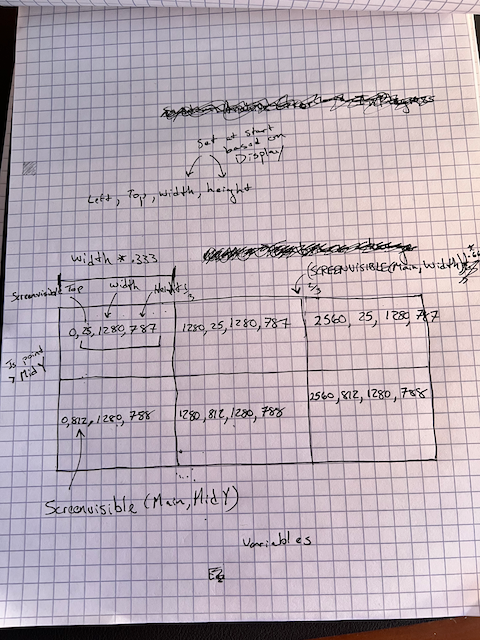 Set at start
based on
Display
Left, Top, width, height
width * .333
(SCREENVISIBLE(Main, Width)
Screenvisible Top
width
Height
0,25,1280,787
1280,25,1280,787
2560, 25, 1280, 787
Is point
> MidY
0,812,1280,788
1280,812,1280,788
2560,812,1280,788
Screenvisible (Main, MidY)
Variables